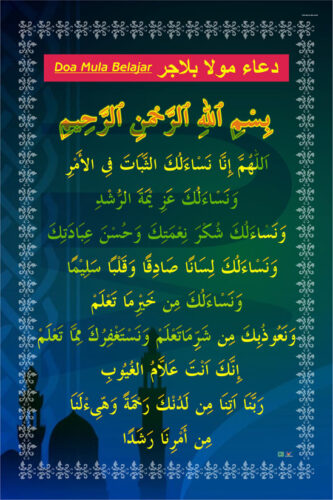 Doa Mula Belajar دعاء مولا بلاجر
بِسْمِ ٱللَّهِ ٱلرَّحْمَٰنِ ٱلرَّحِيمِ
اَللّٰهُمَّ إِنَّا نَسْاءَلُكَ الثَّبَاتَ فِى الأَمْرِ
وَنَسْاءَلُكَ عَزِ يْمَةَ الرُّشْدِ
وَنَسْاءَلُكَ شُكْرَ نِعْمَتِكَ وَحُسْنَ عِبَادَتِكَ
وَنَسْاءَلُكَ لِسَانًا صَادِقًا وَقَلْبًا سَلِيْمًا
وَنَسْاءَلُكَ مِن خَيْرِمَا تَعْلَمُ
وَنَعُوْذُبِكَ مِن شَرِّمَاتَعْلَمُ وَنَسْتَغْفِرُكَ مِمَّا تَعْلَمُ
إِنَّكَ اَنْتَ عَلاَّمُ الْغُيُوْبِ
رَبَّنَا اَتِنَا مِن لَدُنْكَ رَحْمَةً وَهَيِّءْلَنَا
مِن اَمْرِنَا رَشَدًا